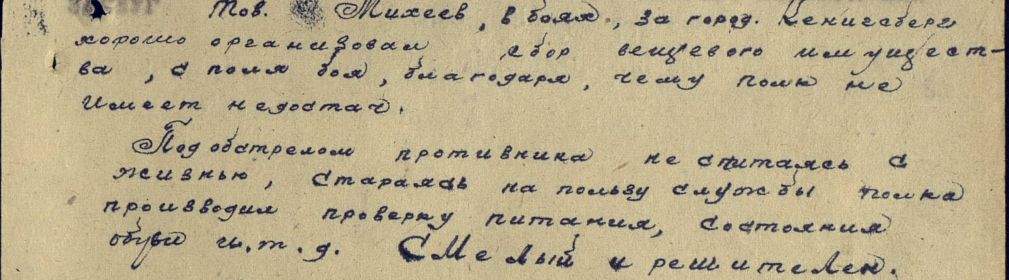 Тов. Михеев, в боях, за город. Кенигсберг
хорошо организовал сбор вещевого имущест-
ва, с поля боя, благодаря, чему полк не
имеет недостач.
Под обстрелом противника не считаясь с
жизнью, стараясь на пользу службы полка
производил проверку питания, состояния
обуви и.т.д. Смелый и решителен.